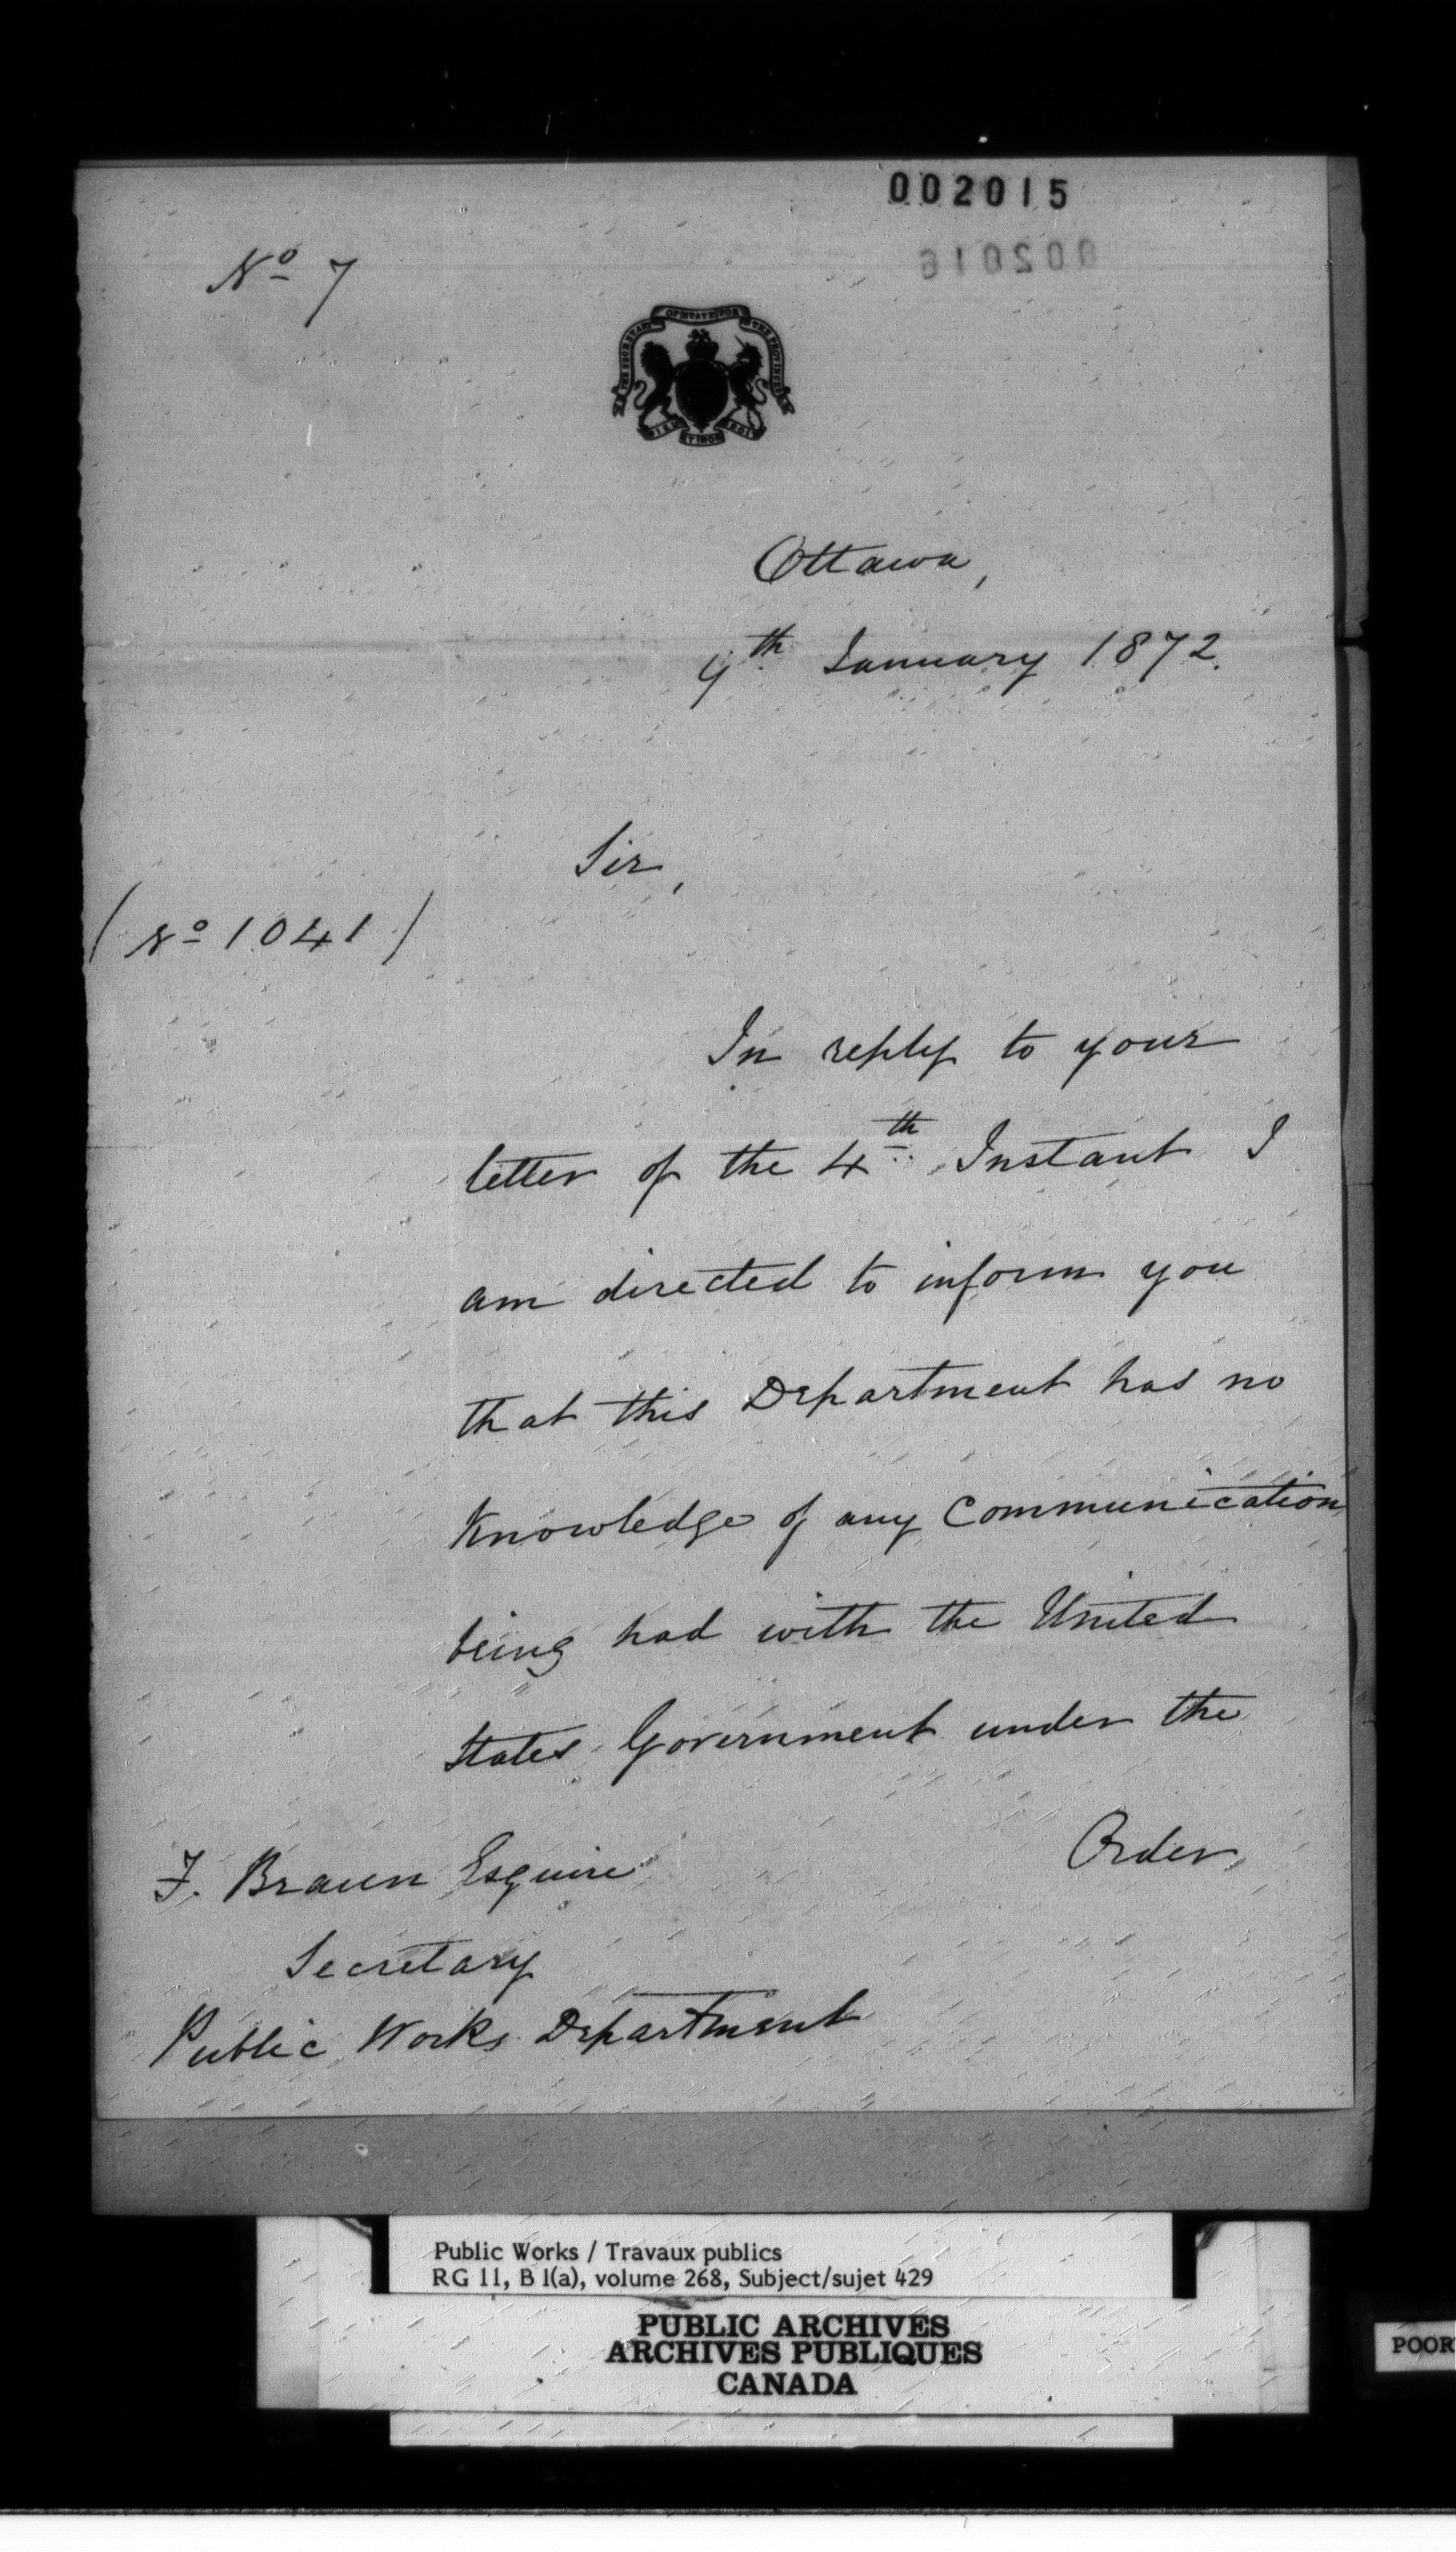 002015
002016
No 7
THE SECRETARY OF STATE FOR THE PROVINCES
DIEU ET MON DROIT
Ottawa,
9th January 1872.
Sir,
(No 1041)
In reply to your
letter of the 4th Instant I
am directed to inform you
that this Department has no
Knowledge of any Communication
being had with the United
States Government under the
Order
F. Braun Esquire
Secretary
Public Works Department
Public Works / Travaux publics
RG 11, B 1(a), volume 268, Subject/sujet 429
PUBLIC ARCHIVES
ARCHIVES PUBLIQUES
CANADA
POOR